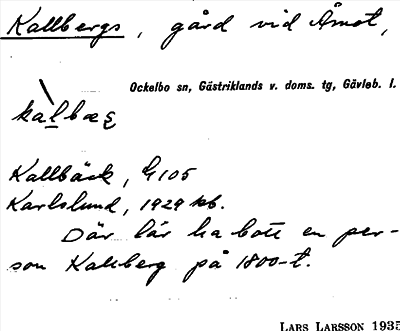 Kallbergs, gård vid Åmot,
Ockelbo sn, Gästriklands v. doms. tg, Gävleb. l.
Kallbäck, G105
Karlslund, 1929 kb.
Där lär ha bott en per-
son Kallberg på 1800-t.
LARS LARSSON 1935